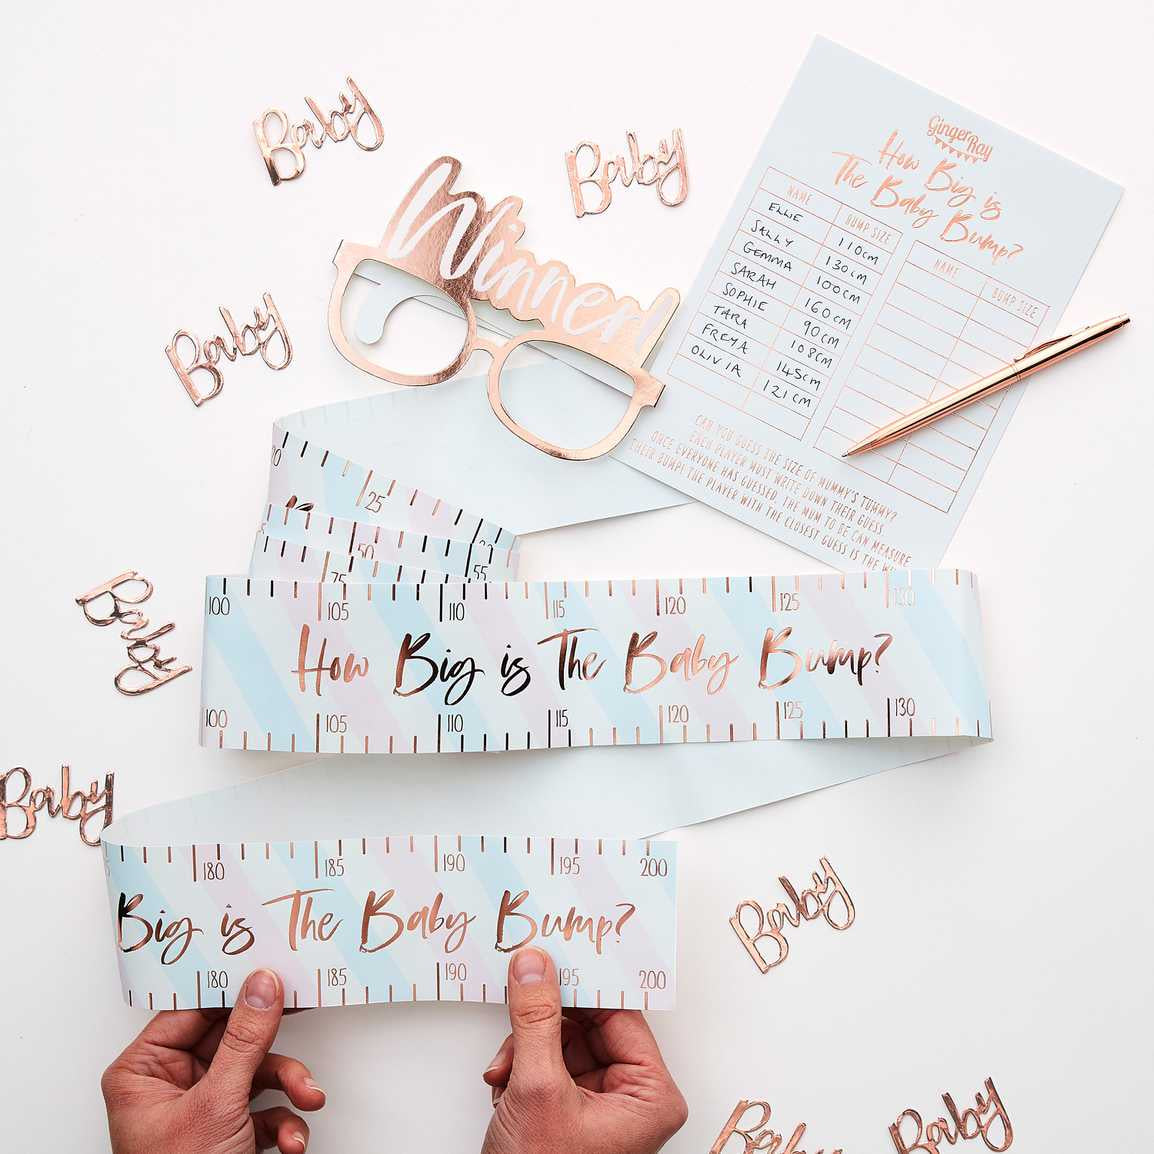 Baby
Baby
Baby
Baby
Baby
Baby
Baby
Baby
Winner
GingerRay
How Big is
The Baby Bump?
NAME BUMP SIZE
ELLIE 110cm
SALLY 130cm
GEMMA 100cm
SARAH 160cm
SOPHIE 90cm
TARA 108cm
FREYA 145cm
OLIVIA 121cm
NAME BUMP SIZE
CAN YOU GUESS THE SIZE OF MUMMY'S TUMMY?
EACH PLAYER MUST WRITE DOWN THEIR GUESS.
ONCE EVERYONE HAS GUESSED, THE MUM TO BE CAN MEASURE
THEIR BUMP! THE PLAYER WITH THE CLOSEST GUESS IS THE
25
50
75 55
100 105 110 115 120 125 130
How Big is The Baby Bump?
100 105 110 115 120 125 130
180 185 190 195 200
Big is The Baby Bump?
180 185 190 195 200